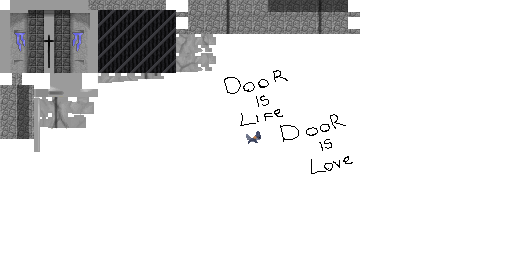 DooR
is
Life
DooR
is
Love